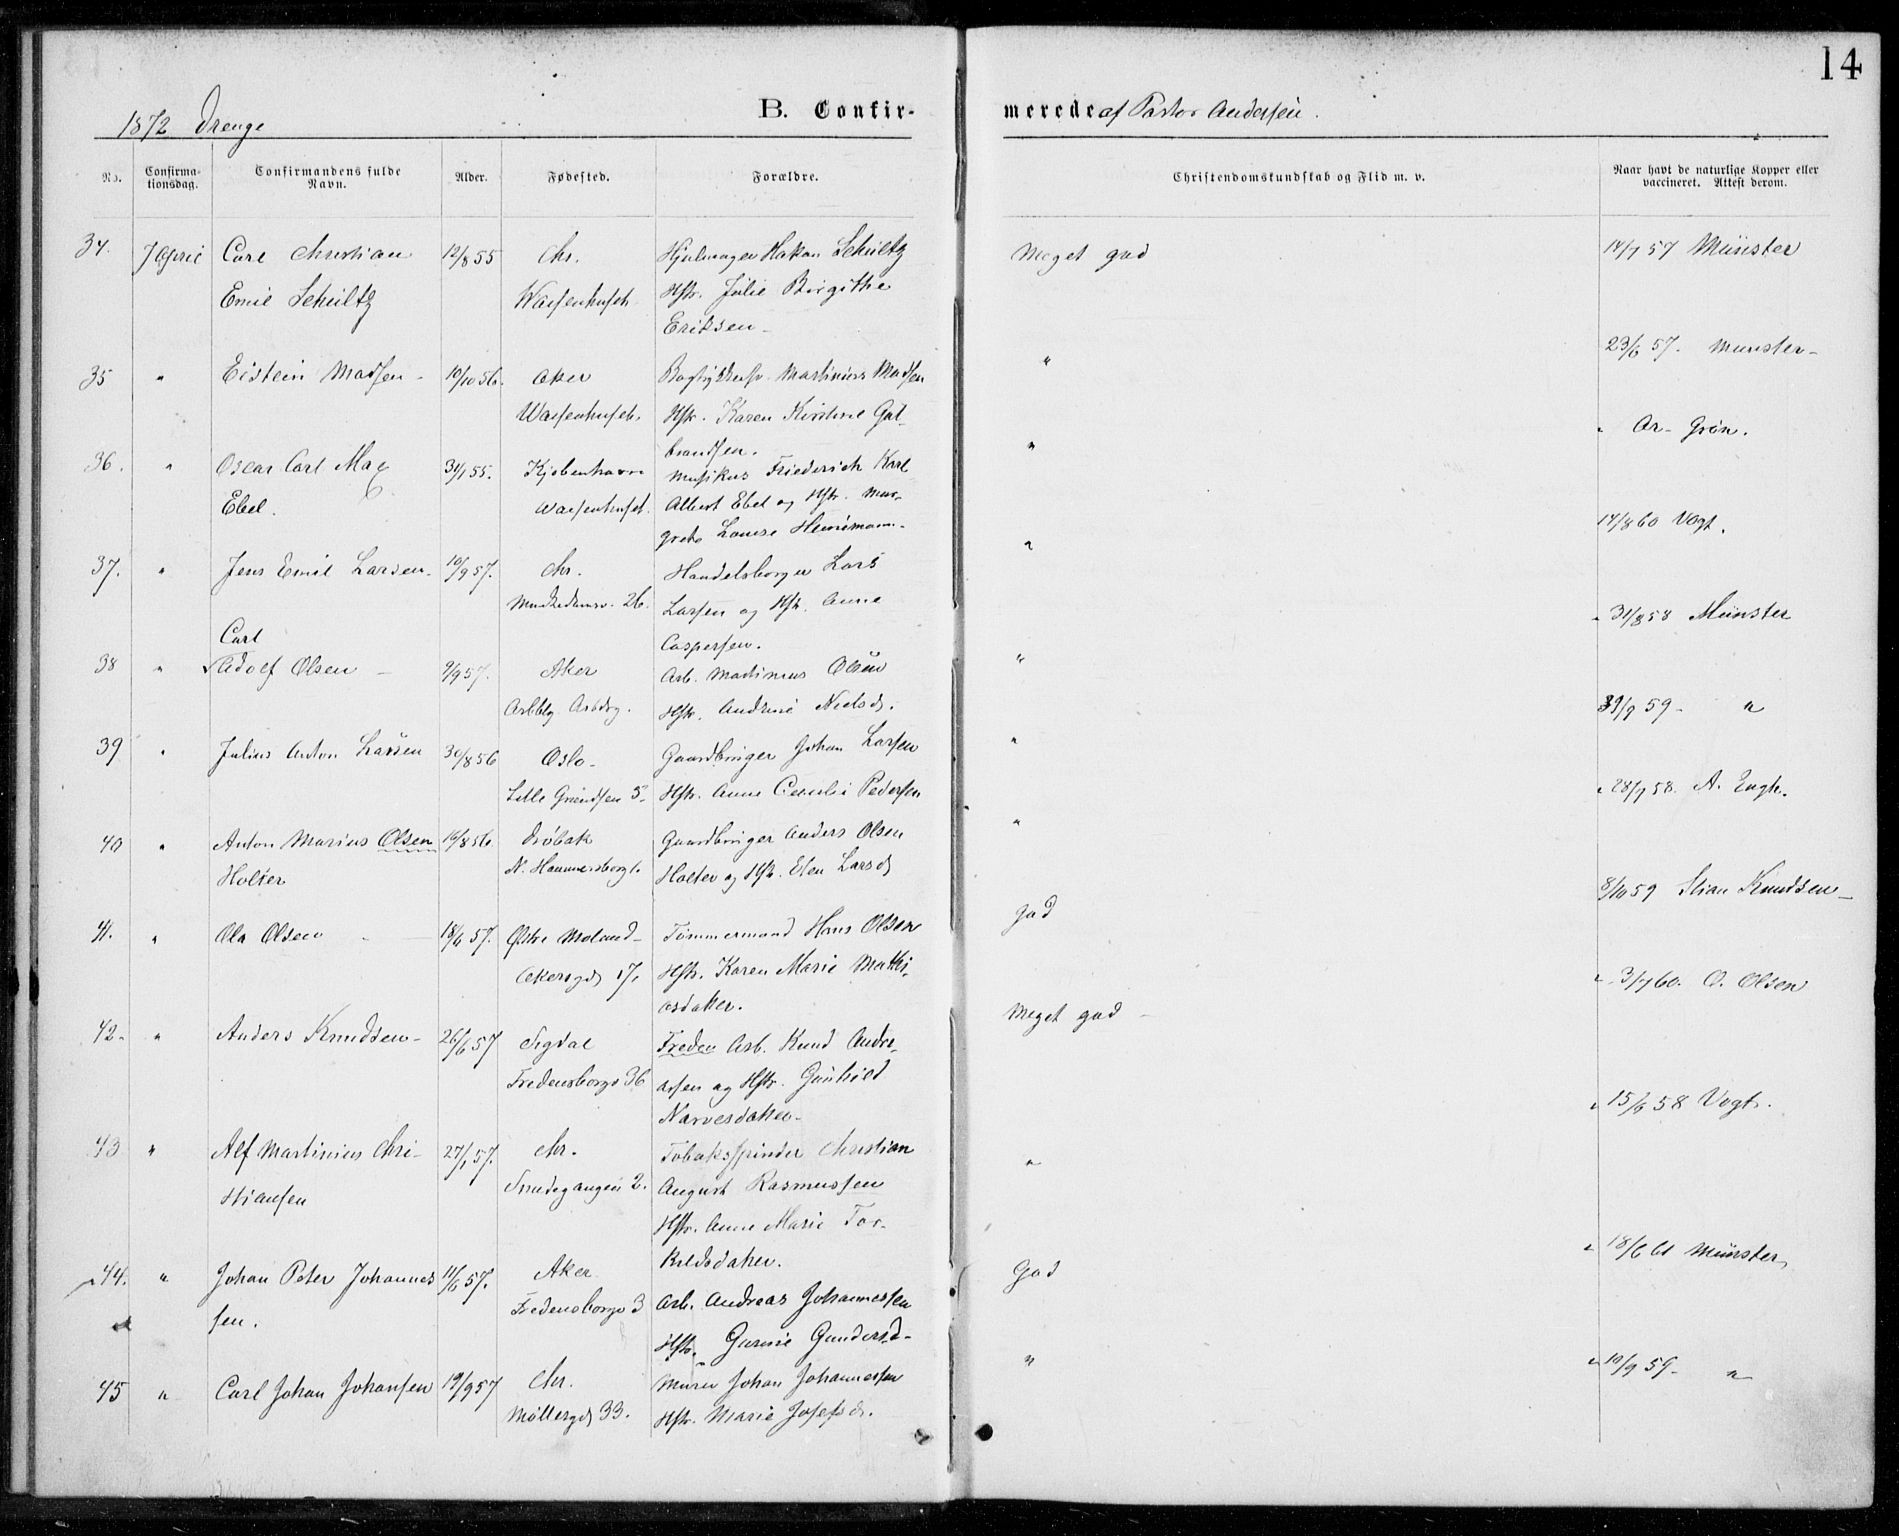 14
1872 Drenge
B. Confir-
merede af Pastor Andersen.
No.
Confirma-
tionsdag.
Confirmandens fulde
Navn.
Alder.
Fødested.
Forældre.
Christendomskundskab og Flid m. v.
Naar havt de naturlige Kopper eller
vaccineret. Attest derom.
34. 7 April Carl Christian 12/8 55 Chr. Hjulmager Hakon Schultz Meget god 14/7 57 Münster
Emil Schultz Waisenhuset. Hstr. Julie Birgithe
Eriksen -
35 " Eistein Madsen - 10/10 56. Aker Martinius Madsen " 23/6 57. Munster -
Waisenhuset. Hstr. Karen Kirstine Gul-
brandsen.
36. " Oscar Carl Max 31/1 55. Kjøbenhavn Musikus Friederich Karl " " Ar - Grøn.
Ebel. Waisenhuset. Albert Ebel og Hstr. Mar-
grete Louise Heinemann.
37. " Jens Emil Larsen. 10/9 57. Chr. Handelsborger Lars " 14/8 60 Vogt.
26. Larsen og Hstr. Anne
Caspersen.
Carl
38 " Adolf Olsen - 9/9 57. Aker Arb. Martinius Olsen " " 31/8 58 Münster
Hstr. Andrine Nielsd.
39 " Julius Anton Larsen 30/8 56 Oslo - Gaardbruger Johan Larsen " 31/9 59 - "
Lille Grændsen 5. Hstr. Anne Cecilie Pedersen
40 " Anton Marius Olsen 16/8 56. Drøbak Gaardbruger Anders Olsen " " 28/7 58. A. Engh.
Holter N. Hammersborg 1. Holter og Hstr. Elen Larsd.
41. " Ola Olsen - 18/6 57. Østre Moland - Tømmermand Hans Olsen god 8/10 59 Stian Knudsen -
Akersgd 17. Hstr. Karen Marie Mathi-
asdatter.
42. " Anders Knudsen - 26/6 57 Sigdal Arb. Knud Andre- Meget god - " 3/7 60. O. Olsen
Fredensborgv 36 assen og Hstr. Gunhild
Narvesdatter.
43 " Alf Martinius Chri- 27/1 57. Chr. Tobaksspinder Christian " " 15/6 58 Vogt.
stiansen Smedegangen 2. August Rasmussen
Hstr. Anne Marie Tor-
kildsdatter.
44. " Johan Peter Johannes 11/6 57. Aker Arb. Andreas Johannessen God " 18/6 61 Münster
sen. Fredensborgv 3 Hstr. Gurine Gundersd -
45 " Carl Johan Johansen 19/9 57 Chr. Murer Johan Johannessen " " 10/9 59 - "
Møllergd 33. Hstr. Marie Josefsd.